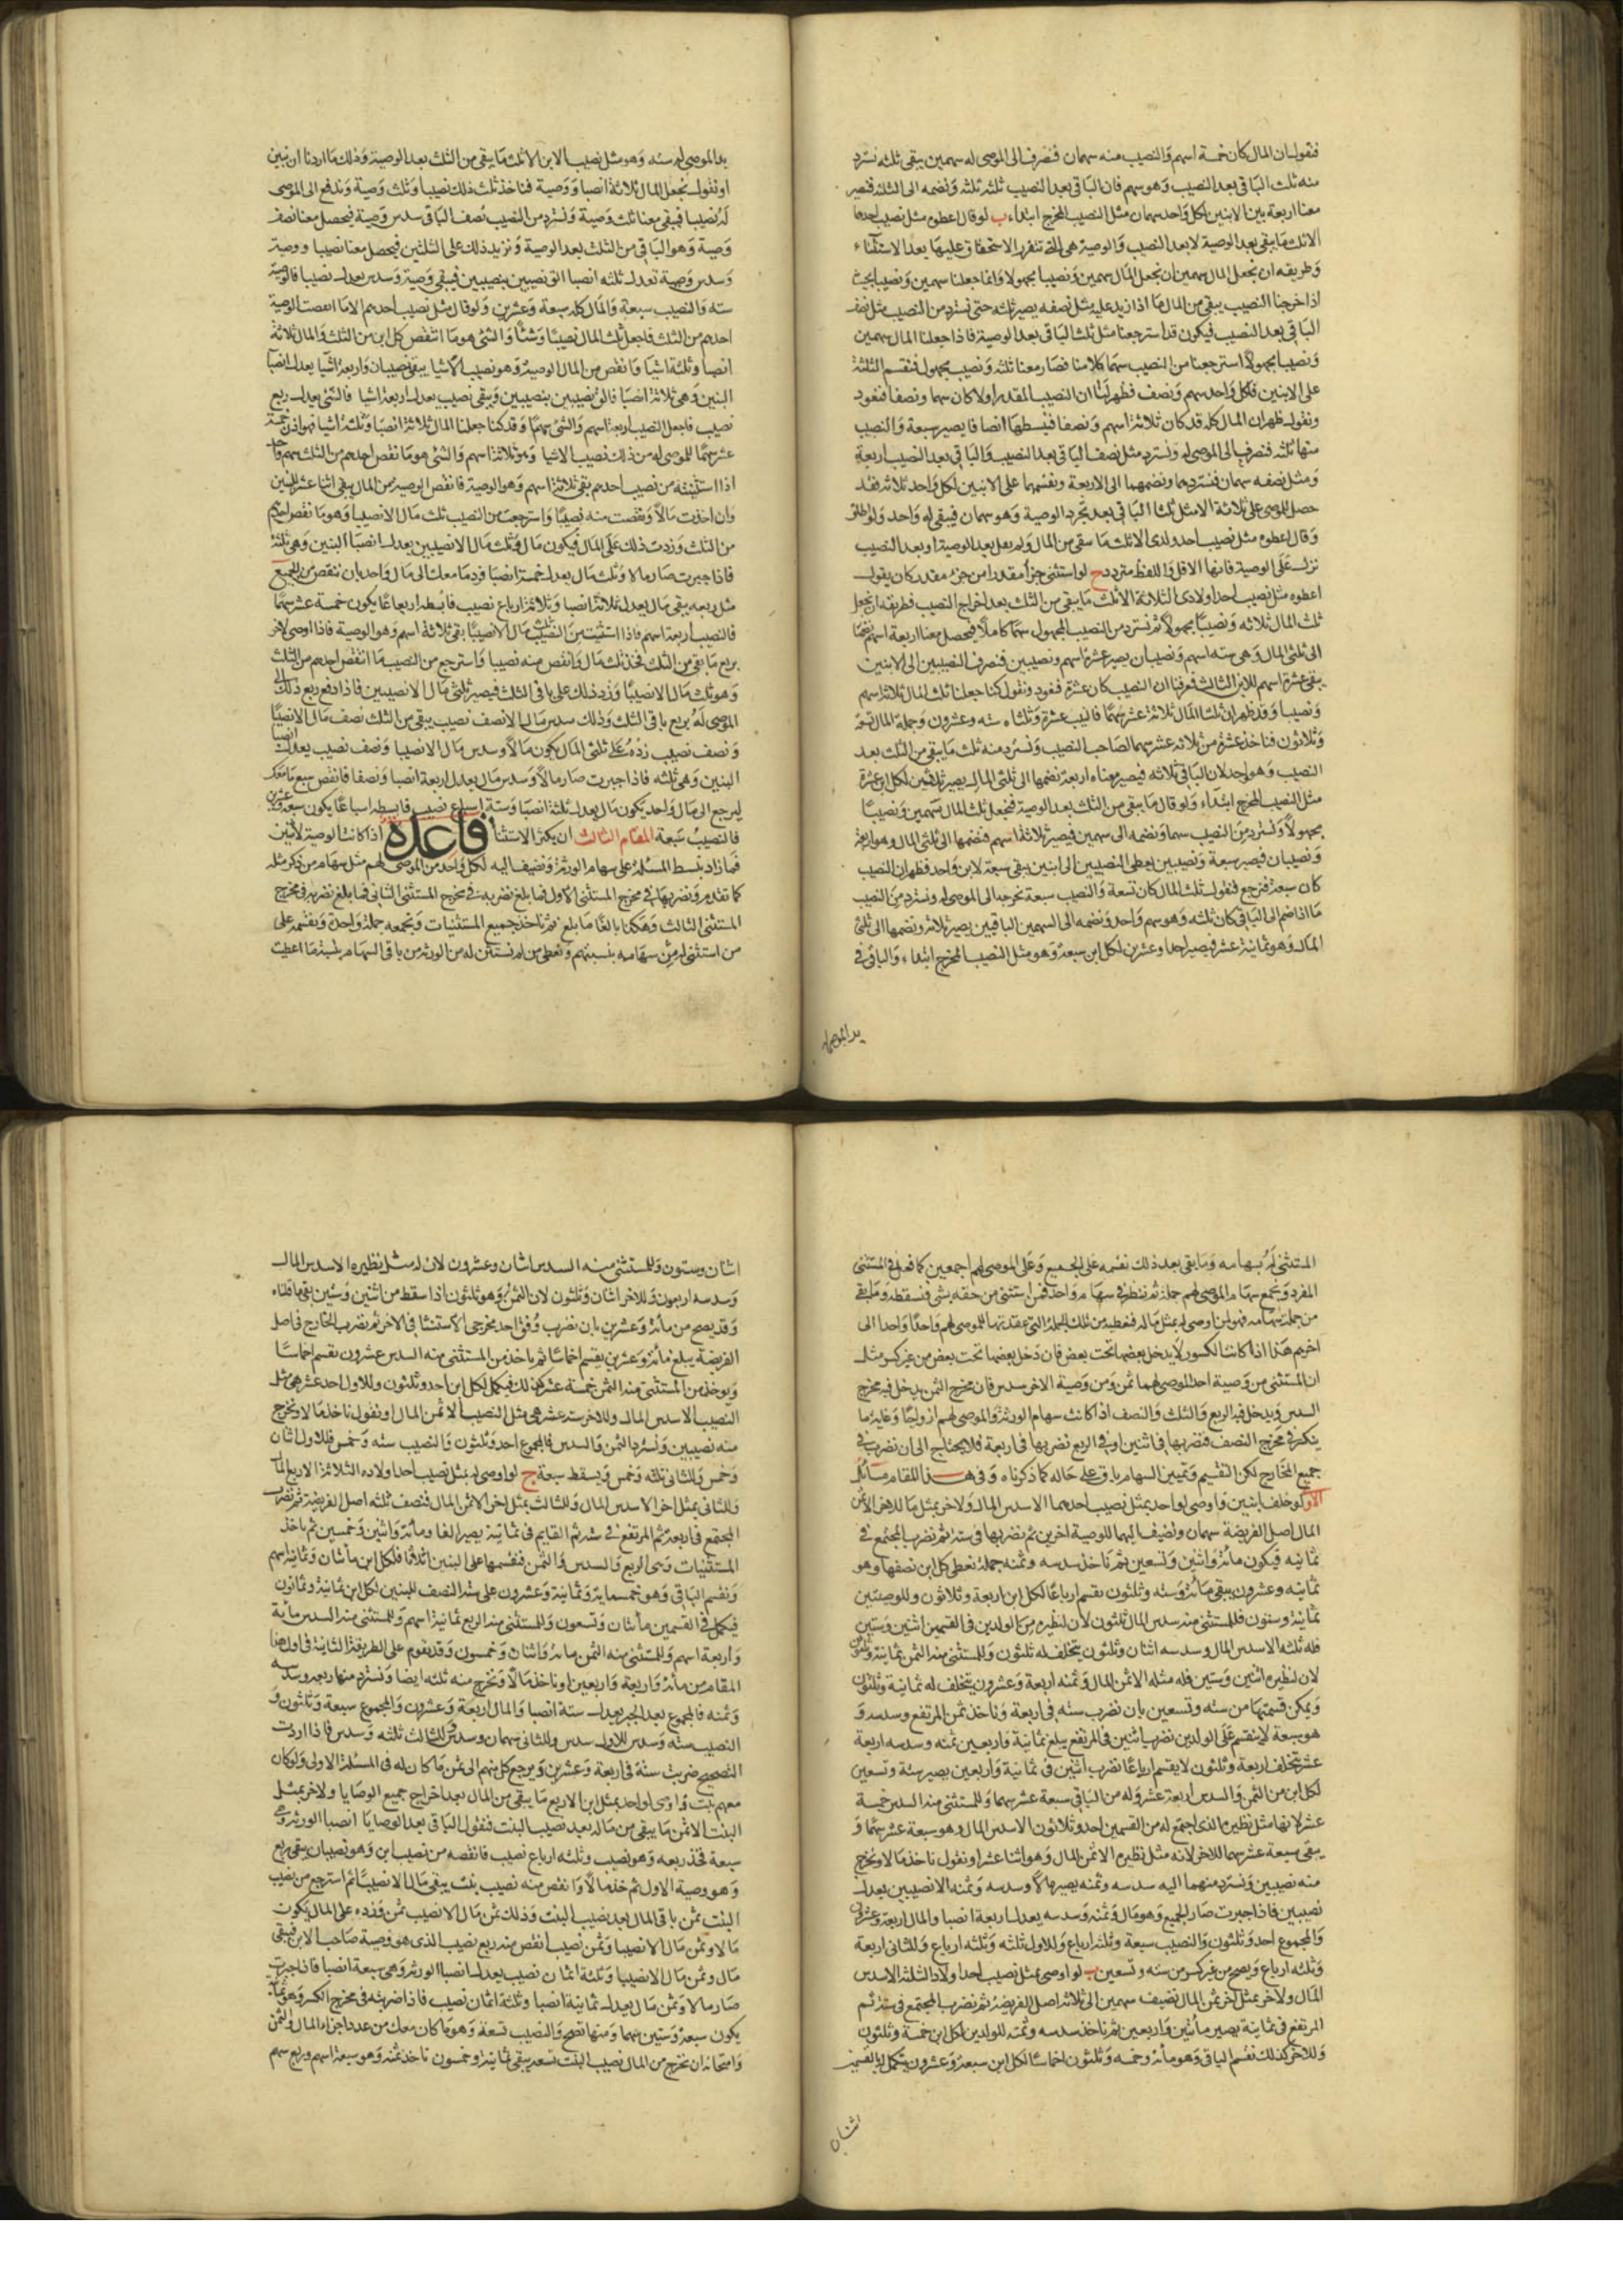 فنقول ان المال كان خمسة اسهم والنصيب منه سهمان فنصرف الى الموصى له سهمين يبقى ثلثه نسترد
منه ثلث الباقى بعد النصيب وهو سهم فان الباقى بعد النصيب ثلثه ونضمه الى الثلثه فتصير
معنا اربعة بين الابنين لكل واحد سهمان مثل النصيب المخرج ابتداء ب لو قال اعطوه مثل نصيب احدهما
الا ثلث ما يبقى بعد الوصية لا بعد النصيب والوصية هى التى تتقرر الاستحقاق عليها بعد الاستثناء
وطريقه ان نجعل المال سهمين ونصيبا مجهولا وانما جعلنا سهمين ونصيبا بحيث
اذا خرجنا النصيب يبقى من المال ما اذا زيد عليه مثل نصفه يصير ثلثه حتى نسترد من النصيب مثل نصف
الباقى بعد النصيب فيكون قد استرجعنا مثل ثلث الباقى بعد الوصية فاذا جعلنا المال سهمين
ونصيبا مجهولا استرجعنا من النصيب سهما كاملا فصار معنا ثلثه ونصيب مجهول فنقسم الثلثة
على الابنين فلكل واحد سهم ونصف فظهر لنا ان النصيب المقدر اولا كان سهما ونصفا فنعود
ونقول ظهر ان المال كله قد كان ثلاثة اسهم ونصفا فنبسطها انصافا يصير سبعة والنصيب
منها ثلثه فنصرف الى الموصى له ونسترد مثل نصف الباقى بعد النصيب والباقى بعد النصيب اربعة
ومثل نصفه سهمان فنستردهما ونضمهما الى الاربعة ونقسمها على الابنين لكل واحد ثلاثه فقد
حصل للموصى على ثلاثة الا مثل ثلث الباقى بعد تجرد الوصية وهو سهمان فيبقى له واحد ولو اطلق
وقال اعطوه مثل نصيب احد ولدى الا ثلث ما يبقى من المال ولم يقل بعد الوصية او بعد النصيب
نزل على الوصية فانها الاقل واللفظ متردد ج لو استثنى جزأ مقدرا من جزء مقدر كان يقول
اعطوه مثل نصيب احد اولادى الثلاثة الا ثلث ما يبقى من الثلث بعد اخراج النصيب فطريقه ان نجعل
ثلث المال ثلاثه ونصيبا مجهولا ثم نسترد من النصيب المجهول سهما كاملا فيحصل معنا اربعة اسهم نضمها
الى ثلثى المال وهى سته اسهم ونصيبان يصير عشرة اسهم ونصيبين فنصرف النصيبين الى الابنين
يبقى عشرة اسهم للابن الثالث فعرفنا ان النصيب كان عشرة فنعود ونقول كنا جعلنا ثلث المال ثلاثة اسهم
ونصيبا وقد ظهر ان ثلث المال ثلاثة عشر سهما فالنصيب عشرة وثلثاه سته وعشرون وجملة المال تسعة
وثلاثون فناخذ عشرة من ثلاثه عشر سهما لصاحب النصيب ونسترد منه ثلث ما يبقى من الثلث بعد
النصيب وهو واحد لان الباقى ثلاثه فيصير معناه اربعة نضمها الى ثلثى المال يصير ثلاثين لكل ابن عشرة
مثل النصيب المخرج ابتداء ولو قال ما يبقى من الثلث بعد الوصية فنجعل ثلث المال سهمين ونصيبا
مجهولا ونسترد من النصيب سهما ونضمه الى سهمين فيصير ثلاثة اسهم فنضمها الى ثلثى المال وهو اربعة
ونصيبان فيصير سبعة ونصيبين يعطى النصيبين الى ابنين يبقى سبعة لابن واحد فظهر ان النصيب
كان سبعة فنرجع فنقول ثلث المال كان تسعة والنصيب سبعة نخرجه الى الموصى له ونسترد من النصيب
ما اذا ضم الى الباقى كان ثلثه وهو سهم واحد ونضمه الى السهمين الباقيين يصير ثلاثه ونضمها الى ثلثى
المال وهو ثمانية عشر فيصير احدا وعشرين لكل ابن سبعة وهو مثل النصيب المخرج ابتداء والباقى فى
يد الموصى له
يد الموصى له سته وهو مثل نصيب الابن الا ثلث ما يبقى من الثلث بعد الوصية وذلك ما اردنا ان نبين
او نقول نجعل المال ثلاثة انصبا ووصية فناخذ ثلث ذلك نصيبا وثلث وصية وندفع الى الموصى
له نصيبا فيبقى معنا ثلث وصية ونسترد من النصيب نصف الباقى سدس وصية فيحصل معنا نصف
وصية وهو الباقى من الثلث بعد الوصية ونزيد ذلك على الثلثين فيحصل معنا نصيبا ووصية
وسدس وصية تعدل ثلثه انصبا الق نصيبين بنصيبين فيبقى وصية وسدس يعدل نصيبا فالوصية
سته والنصيب سبعة والمال كله سبعة وعشرين ولو قال مثل نصيب احدهم الا ما انتقصت الوصية
احدهم من الثلث فاجعل ثلث المال نصيبا وشئا والشئ هو ما انتقص كل ابن من الثلث والمال ثلاثة
انصبا وثلثة اشيا فانقص من المال الوصية وهو نصيب الا شيا يبقى نصيبان واربعة اشيا يعدل انصبا
البنين وهى ثلاثة انصبا فالق نصيبين بنصيبين ويبقى نصيب يعدل اربعة اشيا فالشئ يعدل ربع
نصيب فاجعل النصيب اربعة اسهم والشئ سهما وقد كنا جعلنا المال ثلاثة انصبا وثلثة اشيا فهو اذن خمسة
عشر سهما للموصى له من ذلك نصيب الا شيا وهو ثلاثة اسهم والشئ هو ما نقص احدهم من الثلث سهم واحد
اذا استثنيته من نصيب احدهم بقى ثلاثة اسهم وهو الوصية فانقص الوصية من المال يبقى اثنا عشر للبنين
وان اخذت مالا ونقصت منه نصيبا واسترجعت من النصيب ثلث مال الا نصيبا وهو ما نقص احدهم
من الثلث وزدت ذلك على المال فيكون مال وثلث مال الا نصيبين يعدل انصبا البنين وهى ثلثة
فاذا جبرت صار مالا وثلث مال يعدل خمسة انصبا فرد ما معك الى مال واحد بان تنقص من الجميع
مثل ربعه يبقى مال يعدل ثلاثة انصبا وثلاثة ارباع نصيب فابسطه ارباعا يكون خمسة عشر سهما
فالنصيب اربعة اسهم فاذا استثنيت من النصيب ثلث مال الا نصيبا بقى ثلاثة اسهم وهو الوصية فاذا اوصى لاخر
بربع ما بقى من الثلث فخذ ثلث مال وانقص منه نصيبا واسترجع من النصيب ما انتقص احدهم من الثلث
وهو ثلث مال الا نصيبا وزد ذلك على باقى الثلث فيصير ثلثى مال الا نصيبين فاذا دفع ربع ذلك الى
الموصى له بربع باقى الثلث وذلك سدس مال الا نصف نصيب يبقى من الثلث نصف مال الا نصيبا
ونصف نصيب زده على ثلثى المال يكون مالا وسدس مال الا نصيبا ونصف نصيب يعدل انصبا
البنين وهى ثلثه فاذا جبرت صار مالا وسدس مال يعدل اربعة انصبا ونصفا فانقص سبع ما معك
ليرجع الى مال واحد يكون مال يعدل ثلثة انصبا وستة اسباع نصيب فابسطه اسباعا يكون سبعة وعشرين
فالنصيب سبعة المقام الثالث ان يكثر الاستثنا قاعدة اذا كانت الوصية لاثنين
فما زاد بنسط المسئلة على سهام الورثة ونضيف اليه لكل واحد من الموصى لهم مثل سهام من ذكر مثله
كما تقدم ونضربها فى مخرج المستثنى الاول فما بلغ نضربه فى مخرج المستثنى الثانى فما بلغ نضربه فى مخرج
المستثنى الثالث وهكذا بالغا ما بلغ ثم ناخذ جميع المستثنيات ونجمعه جملة واحدة ونقسمه على
من استثنى له من سهامه بنسبتهم ونعطى من لم نستثن له من الورثة من باقى السهام بنسبة ما اعطيت
المستثنى له بسهامه وما بقى بعد ذلك نقسمه على الجميع وعلى الموصى لهم اجمعين كما فعل فى المستثنى
المفرد ونجمع سهام الموصى لهم جملة ثم ننظر فى سهام واحد فمن استثنى من حقه بشى فنسقطه وما بقى
من جملة سهامه فهو لمن اوصى له بمثل ماله فنعطيه من تلك الجملة التى عقدتها للموصى لهم واحدا واحدا الى
اخرهم هذا اذا كانت الكسور لا يدخل بعضها تحت بعض فان دخل بعضها تحت بعض من غير كسر مثل
ان المستثنى من وصية احد الموصى لهما ثمن ومن وصية الاخر سدس فان مخرج الثمن يدخل فيه مخرج
السدس ويدخل فيه الربع والثلث والنصف اذا كانت سهام الورثة والموصى لهم ازواجا وغاية ما
ينكر فى مخرج النصف فنضربها فى اثنين او فى الربع نضربها فى اربعة فلا يحتاج الى ان نضرب فى
جميع المخارج لكن التقسيم وتميين السهام باق على حاله كما ذكرناه وفى هذا المقام مسائل
الاول لو خلف ابنين واوصى لواحد بمثل نصيب احدهما الا سدس المال ولاخر بمثل ما للاخر الا ثمن
المال اصل الفريضة سهمان ونضيف اليهما للوصية اخرين ثم نضربها فى ستة ثم نضرب المجتمع فى
ثمانيه فيكون مائة واثنين وتسعين ثم ناخذ سدسه وثمنه جملة نعطى كل ابن نصفها وهو
ثمانيه وعشرون يبقى مائة وسته وثلثون نقسم ارباعا لكل ابن اربعة وثلاثون وللوصيتين
ثمانية وستون فللمستثنى منه سدس المال ثلثون لان لنظيره من الولدين فى القسمين اثنين وستين
فله ثلثه الا سدس المال وسدسه اثنان وثلثون يتخلف له ثلثون وللمستثنى منه الثمن ثمانية وثلثون
لان لنظيره اثنين وستين فله مثله الا ثمن المال وثمنه اربعة وعشرون يتخلف له ثمانية وثلثون
ويمكن قسمتها من سته وتسعين بان نضرب سته فى اربعة وناخذ ثمن المرتفع وسدسه و
هو سبعة لا ينقسم على الولدين نضرب اثنين فى المرتفع يبلغ ثمانية واربعين ثمنه وسدسه اربعة
عشر تخلف اربعة وثلثون لا يقسم ارباعا نضرب اثنين فى ثمانية واربعين يصير سته وتسعين
لكل ابن من الثمن والسدس اربعة عشر وله من الباقى سبعة عشر سهما وللمستثنى منه السدس خمسة
عشر لانها مثل نظيره الذى اجتمع له من القسمين احد وثلاثون الا سدس المال وهو سبعة عشر سهما و
يبقى سبعة عشر سهما للاخر لانه مثل نظيره الا ثمن المال وهو اثنا عشر او نقول ناخذ مالا ونخرج
منه نصيبين ونسترد منهما اليه سدسه وثمنه يصير مالا وسدسه وثمنه الا نصيبين يعدل
نصيبين فاذا جبرت صار الجميع وهو مال وثمنه وسدسه يعدل اربعة انصبا والمال اربعة وعشرون
والمجموع احد وثلثون والنصيب سبعة وثلثة ارباع وللاول ثلثه وثلثه ارباع وللثانى اربعة
وثلثه ارباع ويصح من غير كسر من سته وتسعين ب لو اوصى بمثل نصيب احد اولاد الثلثة الا سدس
المال ولاخر بمثل اخر ثمن المال نضيف سهمين الى ثلاثة اصل الفريضة ثم نضرب المجتمع فى ستة ثم
المرتفع فى ثمانية يصير مأتين واربعين ثم ناخذ سدسه وثمنه للولدين لكل ابن خمسة وثلثون
وللاخر كذلك نقسم الباقى وهو مائة وخمسه وثلثون اخماسا لكل ابن سبعة وعشرون يتكمل له بالقسمين
اثنان
اثنان وستون وللمستثنى منه السدس اثنان وعشرون لان له مثل نظيره الا سدس المال
وسدسه اربعون وللاخر اثنان وثلثون لان الثمن وهو ثلثون اذا سقط من اثنين وستين بقى ما قلناه
وقد يصح من مائة وعشرين بان نضرب وفق احد مخرجى الاستثنا فى الاخر ثم نضرب الخارج فى اصل
الفريضة يبلغ مائة وعشرين يقسم اخماسا ثم ناخذ من المستثنى منه السدس عشرون نقسم اخماسا
ويوخذ من المستثنى منه الثمن خمسة عشر كذلك فيكمل لكل ابن احد وثلثون وللاول احد عشر هى مثل
النصيب الا سدس المال وللاخر سته عشر هى مثل النصيب الا ثمن المال او نقول ناخذ مالا ونخرج
منه نصيبين ونسترد الثمن والسدس فالمجموع احد وثلثون والنصيب سته وخمس فللاول اثنان
وخمس وللثانى ثلثه وخمس ويسقط سبعة ج لو اوصى له بمثل نصيب احد اولاده الثلاثة الا ربع المال
وللثانى بمثل اخر الا سدس المال وللثالث بمثل اخر الا ثمن المال فنصف ثلثه اصل الفريضة ثم نضرب
المجتمع فى اربعة ثم المرتفع فى ستة ثم القايم فى ثمانية يصير الفا ومائة واثنين وخمسين ثم ناخذ
المستثنيات وهى الربع والسدس والثمن فنقسمها على البنين اثلاثا فلكل ابن مأتان وثمانية اسهم
ونقسم الباقى وهو خمسماية وثمانية وعشرون على ستة النصف للبنين لكل ابن ثمانية وثمانون
فيكمل فى القسمين مأتان وتسعون وللمستثنى منه الربع ثمانية اسهم وللمستثنى منه السدس مأية
واربعة اسهم وللمستثنى منه الثمن مائة واثنان وخمسون وقد يقوم على الطريقة الثانية فى اول هذا
المقام من مائة واربعة واربعين او ناخذ مالا ونخرج منه ثلثه انصبا ونسترد منها ربعه وسدسه
وثمنه فالمجموع بعد الجبر يعدل ستة انصبا والمال اربعة وعشرون والمجموع سبعة وثلثون و
النصيب سته وسدس للاول سدس وللثانى سهمان وسدس وللثالث ثلثه وسدس فاذا اردت
التصحيح ضربت ستة فى اربعة وعشرين ويرجع كل منهم الى ثمن ما كان له فى المسئلة الاولى ولو كان
معهم بنت واوصى لواحد بمثل ابن الا ربع ما يبقى من المال بعد اخراج جميع الوصايا ولاخر بمثل
البنت الا ثمن ما يبقى من ماله بعد نصيب البنت فنقول الباقى بعد الوصايا انصبا الورثة وهى
سبعة فخذ ربعه وهو نصيب وثلثه ارباع نصيب فانقصه من نصيب ابن وهو نصيبان يبقى ربع
وهو وصية الاول ثم خذ مالا وانقص منه نصيب بنت يبقى مال الا نصيبا ثم استرجع من نصيب
البنت ثمن باقى المال بعد نصيب البنت وذلك ثمن مال الا نصيب ثمن وزده على المال يكون
مالا وثمن مال الا نصيبا وثمن نصيب انقص منه ربع نصيب الذى هو وصية صاحب الابن فيبقى
مال وثمن مال الا نصيبا وثلثة اثمان نصيب يعدل انصبا الورثة وهى سبعة انصبا فاذا جبرت
صار مالا وثمن مال يعدل ثمانية انصبا وثلثة اثمان نصيب فاذا ضربته فى مخرج الكسر وهو ثمانية
يكون سبعة وستين سهما ومنها تصح والنصيب تسعة وهو ما كان معك من عدد اجزاء المال والثمن
وامتحانه ان نخرج من المال نصيب البنت تسعة يبقى ثمانية وخمسون ناخذ ثمنه وهو سبعة اسهم وربع سهم